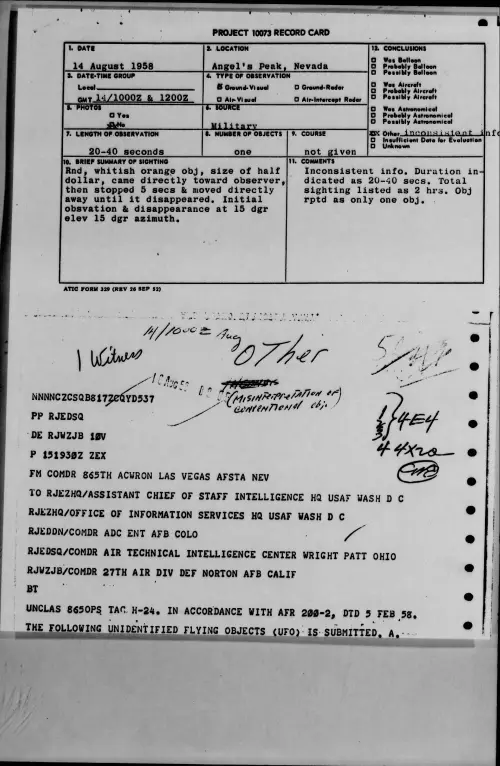 PROJECT 10073 RECORD CARD
1. DATE
14 August 1958
2. LOCATION
Angel's Peak, Nevada
12. CONCLUSIONS
Was Balloon
Probably Balloon
Possibly Balloon
Was Aircraft
Probably Aircraft
Possibly Aircraft
Was Astronomical
Probably Astronomical
Possibly Astronomical
Other inconsistent info
Insufficient Data for Evaluation
Unknown
3. DATE-TIME GROUP
Local
GMT 14/1000Z & 1200Z
4. TYPE OF OBSERVATION
Ground-Visual
Ground-Radar
Air-Visual
Air-Intercept Radar
5. PHOTOS
Yes
No
6. SOURCE
Military
7. LENGTH OF OBSERVATION
20-40 seconds
8. NUMBER OF OBJECTS
one
9. COURSE
not given
10. BRIEF SUMMARY OF SIGHTING
Rnd, whitish orange obj, size of half
dollar, came directly toward observer,
then stopped 5 secs & moved directly
away until it disappeared. Initial
obsvation & disappearance at 15 dgr
elev 15 dgr azimuth.
11. COMMENTS
Inconsistent info. Duration in-
dicated as 20-40 secs. Total
sighting listed as 2 hrs. Obj
rptd as only one obj.
ATIC FORM 329 (REV 26 SEP 52)
14/1000Z Aug
1 Witness
OTHer
(MISINTERPRETATION OF
CONVENTIONAL obj.)
NNNNCZCSQB817ZCQYD537
4E4
PP RJEDSQ
DE RJWZJB 10V
44X20
P 151930Z ZEX
FM COMDR 865TH ACWRON LAS VEGAS AFSTA NEV
TO RJEZHQ/ASSISTANT CHIEF OF STAFF INTELLIGENCE HQ USAF WASH D C
RJEZHQ/OFFICE OF INFORMATION SERVICES HQ USAF WASH D C
RJEDDN/COMDR ADC ENT AFB COLO
RJEDSQ/COMDR AIR TECHNICAL INTELLIGENCE CENTER WRIGHT PATT OHIO
RJWZJB/COMDR 27TH AIR DIV DEF NORTON AFB CALIF
BT
UNCLAS 865OPS TAC H-24. IN ACCORDANCE WITH AFR 200-2, DTD 5 FEB 58.
THE FOLLOWING UNIDENTIFIED FLYING OBJECTS (UFO) IS SUBMITTED. A.